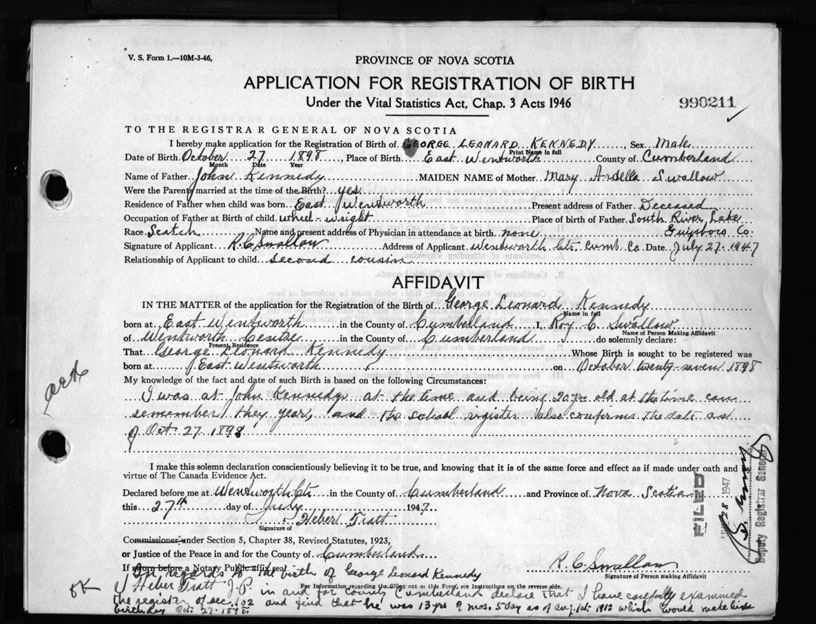 V. S. Form 1.—10M-3-46.
PROVINCE OF NOVA SCOTIA
APPLICATION FOR REGISTRATION OF BIRTH
Under the Vital Statistics Act, Chap. 3 Acts 1946
990211
TO THE REGISTRAR GENERAL OF NOVA SCOTIA
I hereby make application for the Registration of Birth of GEORGE LEONARD KENNEDY, Sex Male
Print Name in full
Date of Birth October 27 1898 Place of Birth East Wentworth County of Cumberland
Month Date Year
Name of Father John Kennedy MAIDEN NAME of Mother Mary Ardella Swallow
Were the Parents married at the time of the Birth? yes
Residence of Father when child was born East Wentworth Present address of Father Deceased
Occupation of Father at Birth of child wheel-wright Place of birth of Father South River, Lake
Race Scotch Name and present address of Physician in attendance at birth none Guysboro Co.
Signature of Applicant R.C. Swallow Address of Applicant Wentworth Ctr. Cumb. Co. Date July 27-1947
Relationship of Applicant to child second cousin
AFFIDAVIT
IN THE MATTER of the application for the Registration of the Birth of George Leonard Kennedy
Name in full
born at East Wentworth in the County of Cumberland I, Roy C. Swallow
Name of Person Making Affidavit
of Wentworth Centre in the County of Cumberland do solemnly declare:
Present Residence
That George Leonard Kennedy Whose Birth is sought to be registered was
born at East Wentworth on October twenty-seven 1898
My knowledge of the fact and date of such Birth is based on the following Circumstances:
I was at John Kennedys at the time and being 20 yrs old at the time can
remember they year, and the school register also confirms the date as
of Oct 27 1898
I make this solemn declaration conscientiously believing it to be true, and knowing that it is of the same force and effect as if made under oath and
virtue of The Canada Evidence Act.
Declared before me at Wentworth Ctr in the County of Cumberland and Province of Nova Scotia
this 27th day of July 1947
Heber Tratt
Signature of
Commissioner under Section 5, Chapter 38, Revised Statutes, 1923,
or Justice of the Peace in and for the County of Cumberland
If sworn before a Notary Public affix seal
R.C. Swallow
Signature of Person making Affidavit
In regards to the birth of George Leonard Kennedy
For Information regarding the filling out of this Form, see Instructions on the reverse side.
I Heber Tratt J.P. in and for county Cumberland declare that I have carefully examined
the register of sec. 102 and find that he was 13 yrs 9 mos. 5 day as of Aug. 1st 1912 which would make his
birthday Oct 27-1898
OK
FILED
28 1947
Deputy Registrar General